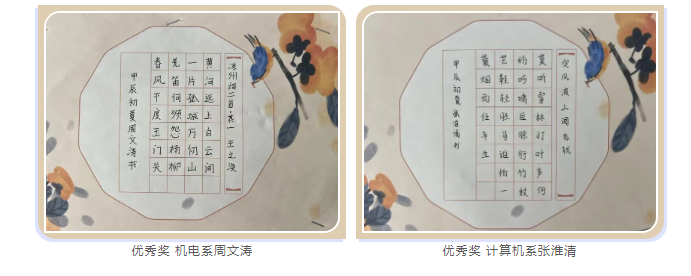 凉州词二首·其一 王之涣
黄河远上白云间
一片孤城万仞山
羌笛何须怨杨柳
春风不度玉门关
甲辰初夏周文涛书
优秀奖 机电系周文涛
定风波上阕苏轼
莫听穿林打叶声何
妨吟啸且徐行竹杖
芒鞋轻胜马谁怕一
蓑烟雨任平生
甲辰初夏张淮清书
优秀奖 计算机系张淮清